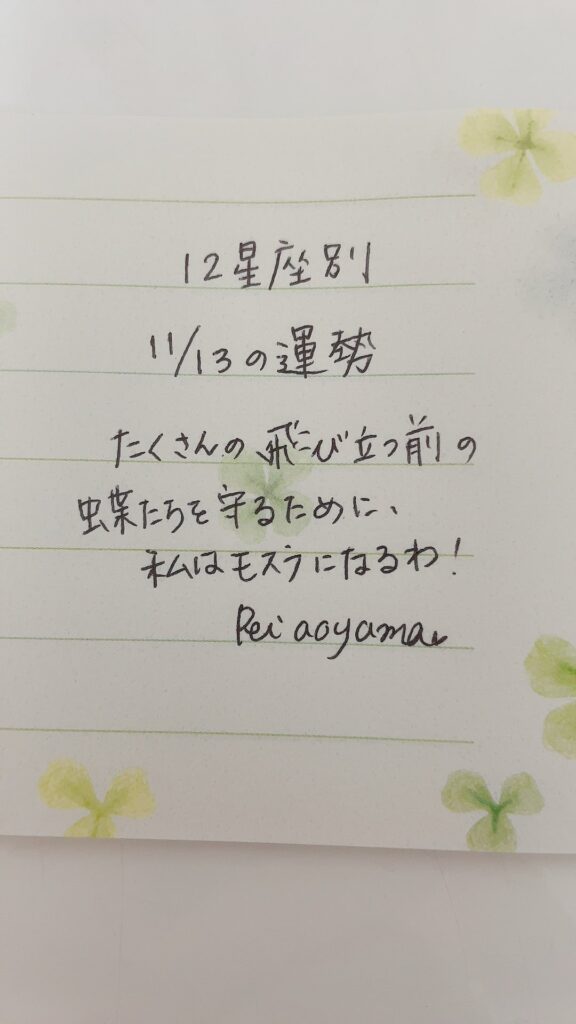 12星座別
11/13の運勢
たくさんの飛び立つ前の
蝶たちを守るために、
私はモスラになるわ!
Rei aoyama